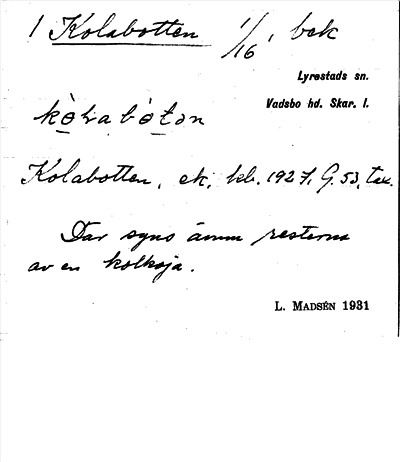 1 Kolabotten 1/16, bek
Lyrestads sn.
Vadsbo hd. Skar. l.
Kolabotten, ek. kb. 1927, G. 53, tax.
Där syns ännu resterna
av en kolkoja.
L. MADSÉN 1931